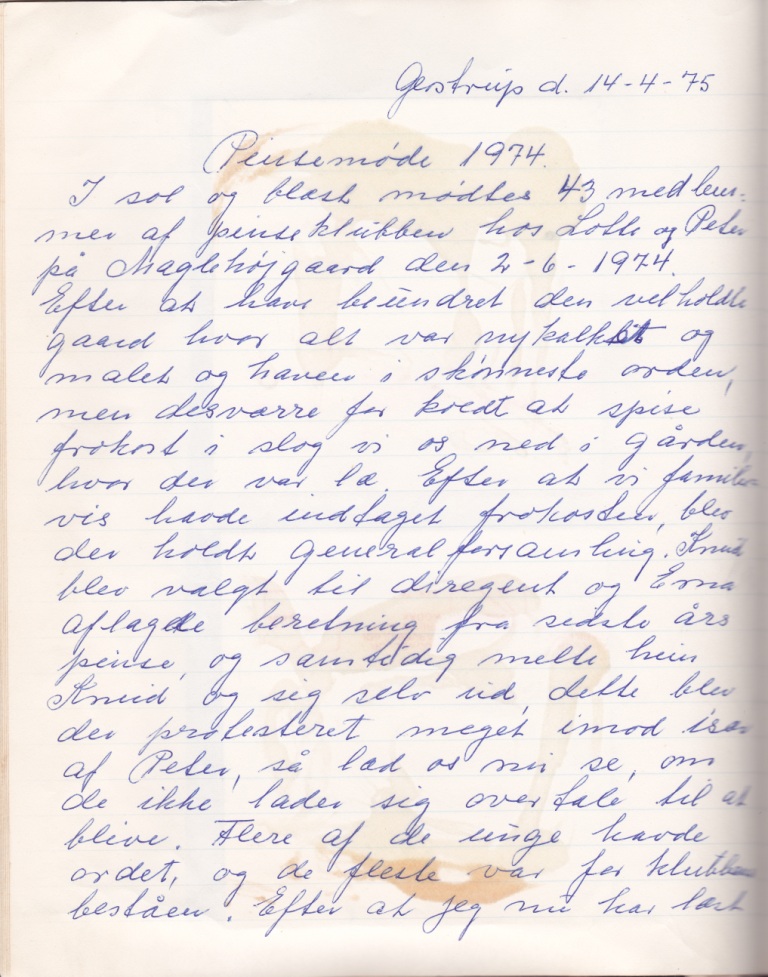 Gerstrup d. 14-4-75
Pinsemøde 1974.
I sol og blæst mødtes 43 medlem-
mer af pinseklubben hos Lotte og Peter
på Maglehøjgaard den 2-6-1974.
Efter at have beundret den velholdte
gaard hvor alt var nykalket og
malet og haven i skønneste orden,
men desværre for koldt at spise
frokost i slog vi os ned i gården,
hvor der var læ. Efter at vi familie-
vis havde indtaget frokosten, blev
der holdt generalforsamling. Knud
blev valgt til diregent og Erna
aflagde beretning fra sidste års
pinse, og samtidig meldte hun
Knud og sig selv ud, dette blev
der protesteret meget imod især
af Peter, så lad os nu se, om
de ikke lader sig overtale til at
blive. Flere af de unge havde
ordet, og de fleste var for klubbens
beståen. Efter at jeg nu har læst